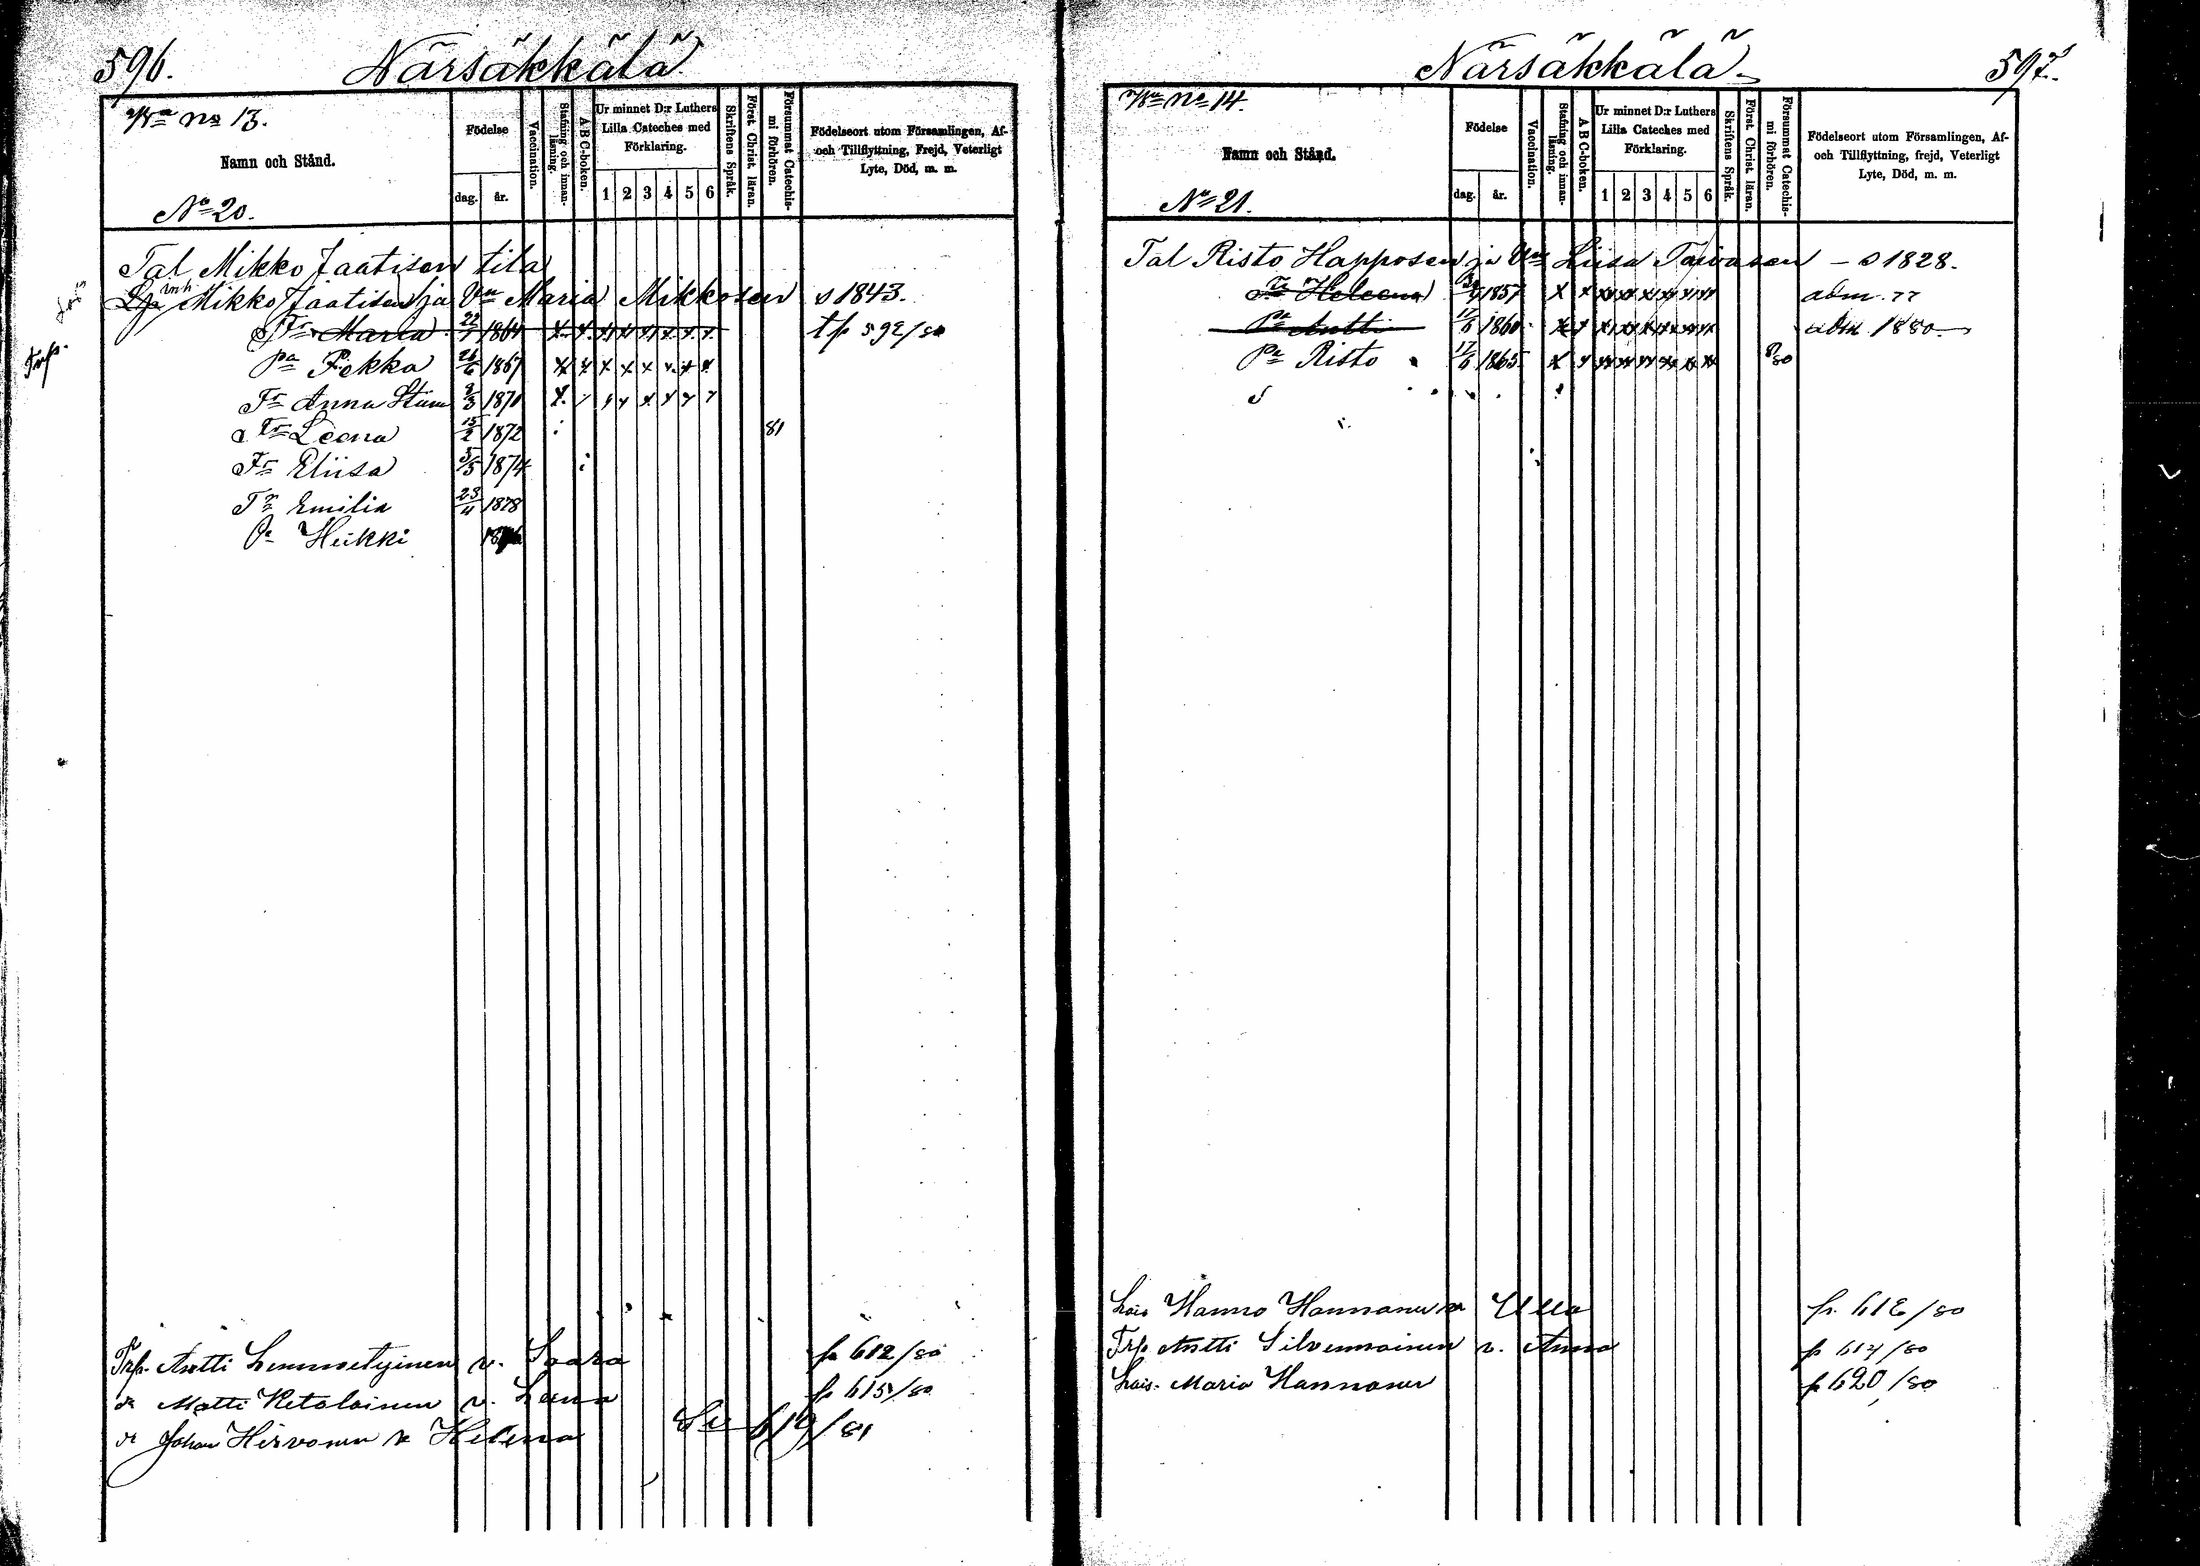 596.
Närsäkkälä
No 13.
Namn och Stånd.
No 20.
Födelse
dag. år.
Vaccination.
Stafning och innanläsning.
A B C-boken.
Ur minnet D:r Luthers Lilla Cateches med Förklaring.
1 2 3 4 5 6
Skriftens Språk.
Först. Christ. läran.
Försummat Catechismi förhören.
Födelseort utom Församlingen, Af- och Tillflyttning, Frejd, Veterligt Lyte, Död, m. m.
Tal Mikko Jaatisen tila
Mikko Jaatisen ja Vm Maria Mikkosen s 1843.
Tr Maria 1864 x x x x x x x x tp 592/80
Trp.
Pa Pekka 26/6 1867 x x x x x x x x
Tr Anna Stiina 1870
Tr Leena 15/2 1872 81
Tr Eliisa 5/5 1874
Tr Emilia 23/11 1878
Pa Heikki
Trp. Antti Lemmetyinen v. Saara p 612/80
Matti Ketolainen v. Leena p 615/80
Johan Hirvonen v Helena 619/81
Närsäkkälä
597.
No 14.
Namn och Stånd.
No 21.
Födelse
dag. år.
Vaccination.
Stafning och innanläsning.
A B C-boken.
Ur minnet D:r Luthers Lilla Cateches med Förklaring.
1 2 3 4 5 6
Skriftens Språk.
Först. Christ. läran.
Försummat Catechismi förhören.
Födelseort utom Församlingen, Af- och Tillflyttning, frejd, Veterligt Lyte, Död, m. m.
Tal Risto Happosen ja Vm Liisa Taivasen – s 1828.
Tr Heleena 1857 x x xx xx xx xx xx xx adm. 77
Pa Antti 17/6 1860 adm 1880
Pa Risto 17/6 1865 80
Lois Hanno Hannanen v Ulla p. 616/80
Trp Antti Silvennoinen v. Anna p 617/80
Lois. Maria Hannanen p 620/80